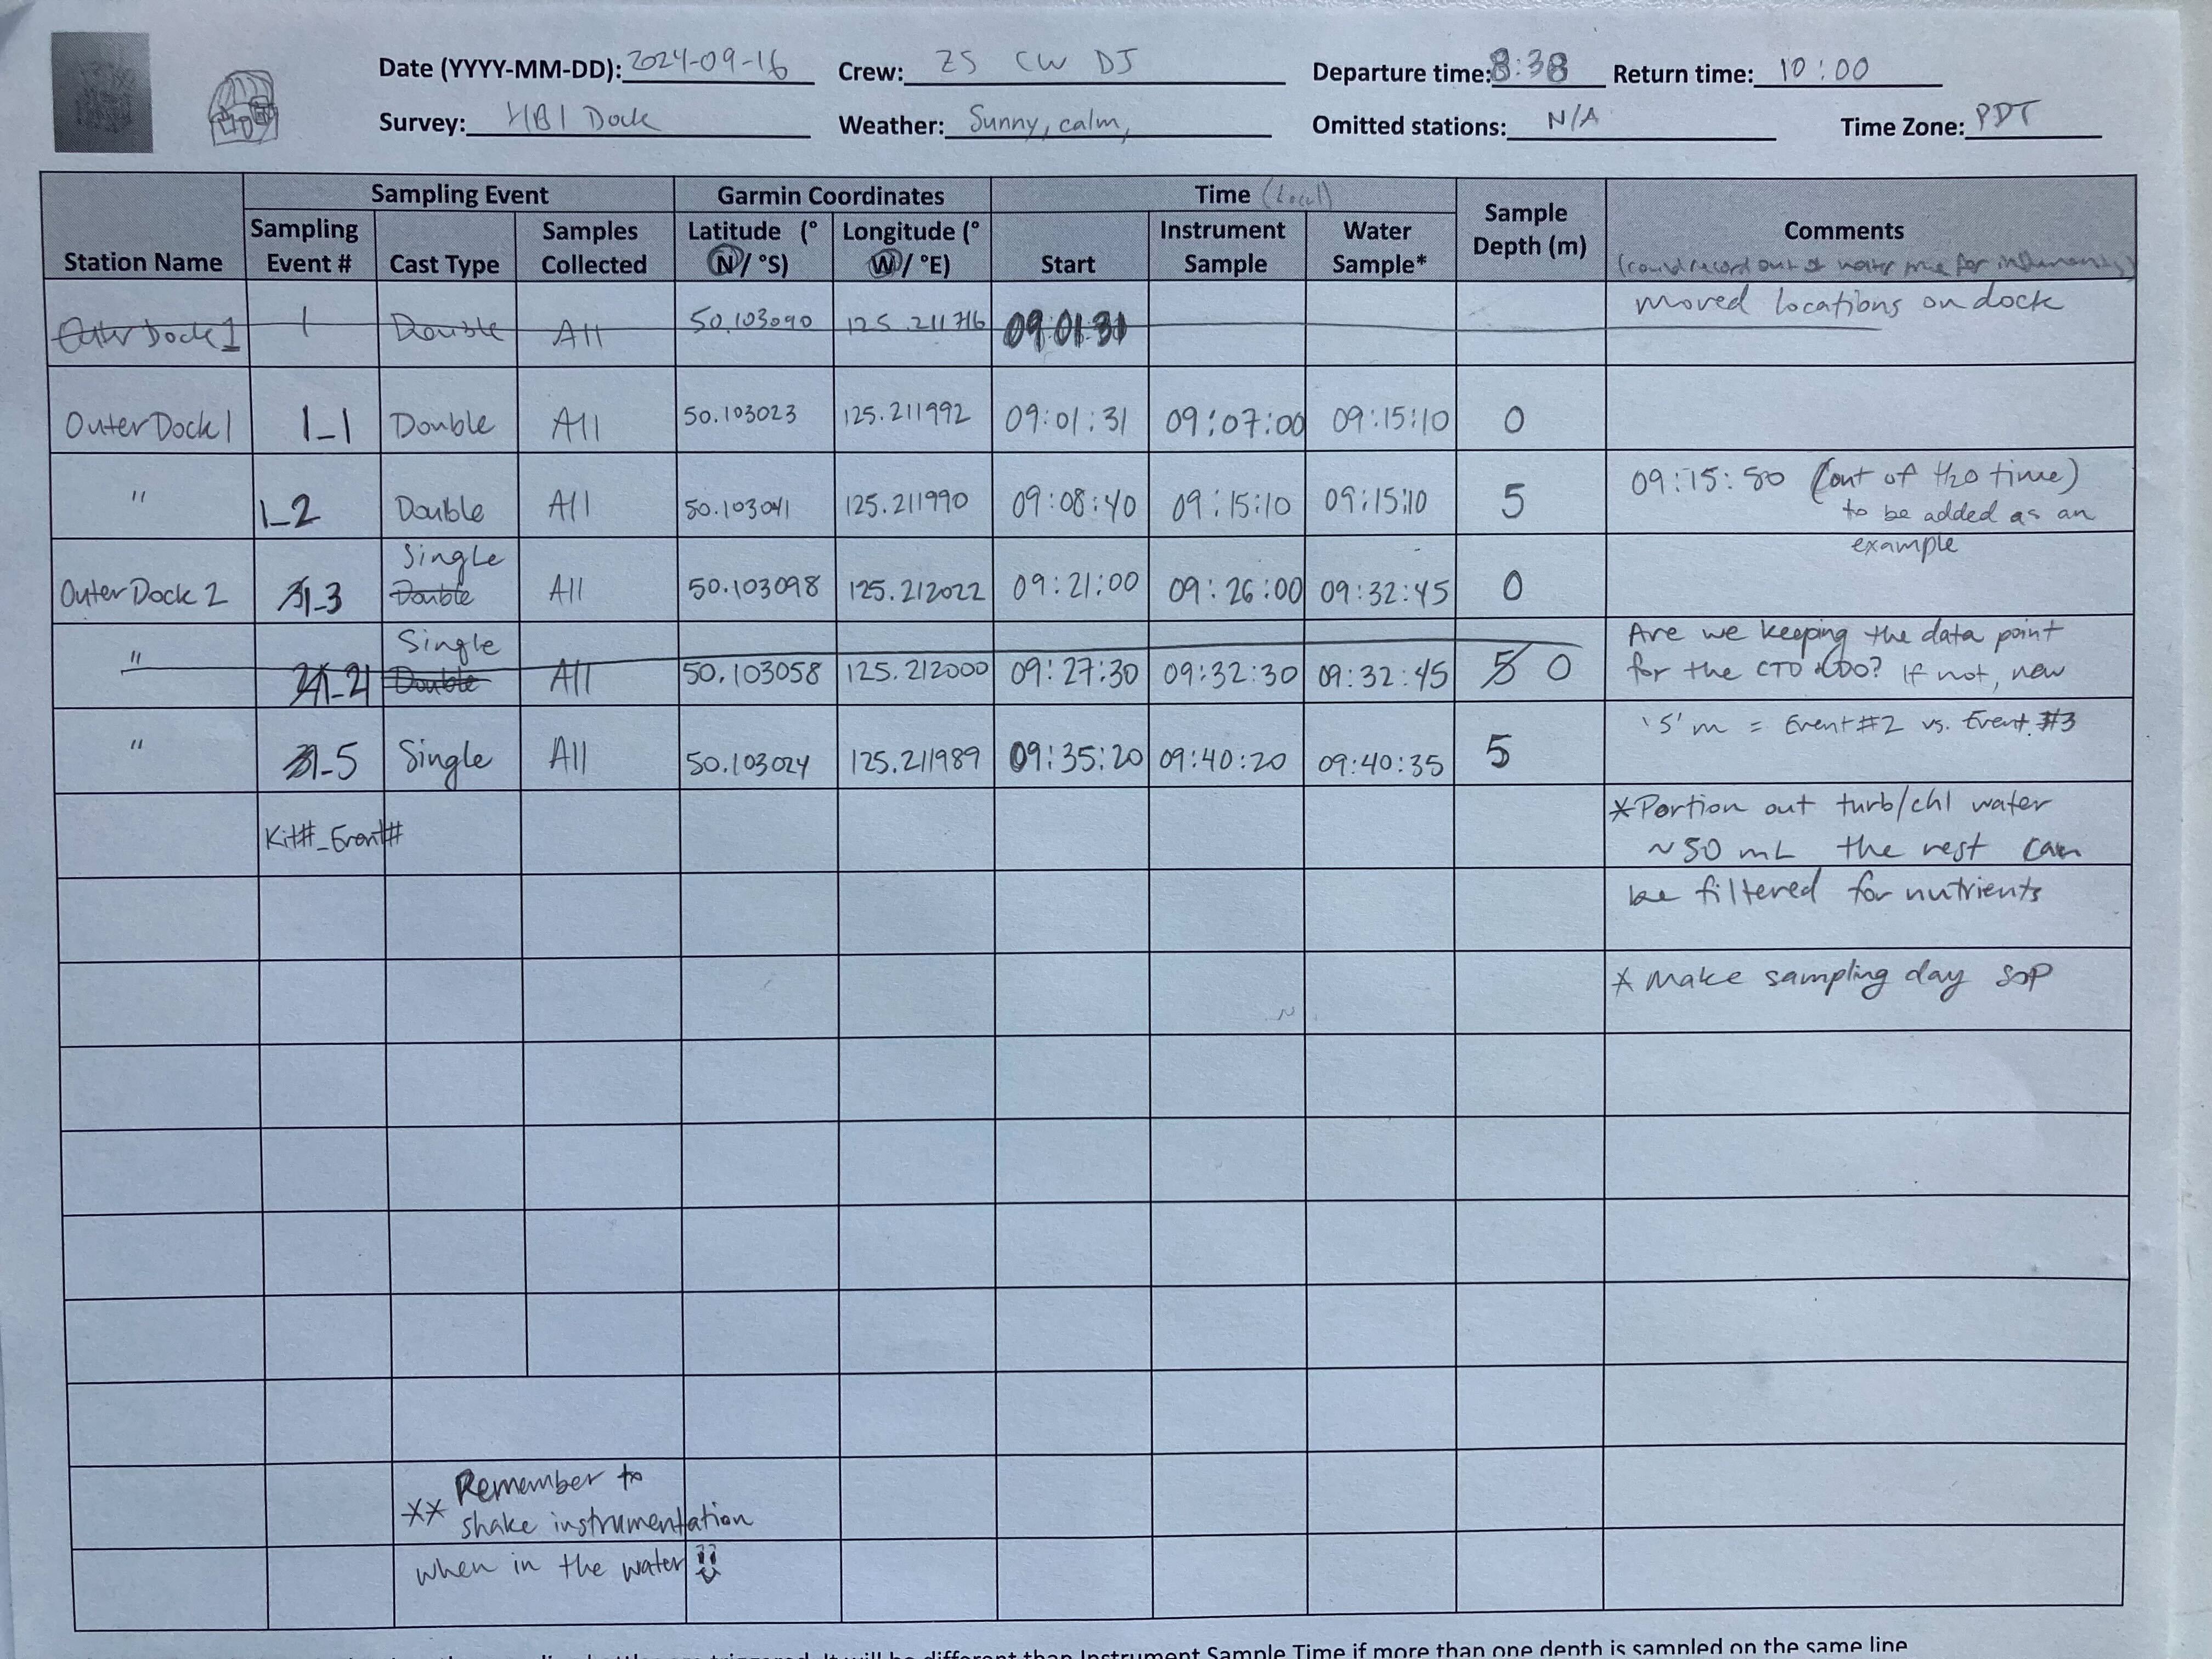 Date (YYYY-MM-DD): 2024-09-16 Crew: ZS CW DJ Departure time: 8:38 Return time: 10:00
Survey: HBI Dock Weather: Sunny, calm, Omitted stations: N/A Time Zone: PDT
Sampling Event Garmin Coordinates Time (Local)
Station Name Sampling Event # Cast Type Samples Collected Latitude (° N/ °S) Longitude (° W/ °E) Start Instrument Sample Water Sample* Sample Depth (m) Comments
(could record out of water time for instruments)
Outer Dock 1 1 Double All 50.103090 125.211716 09:01:31 moved locations on dock
Outer Dock 1 1_1 Double All 50.103023 125.211992 09:01:31 09:07:00 09:15:10 0
" 1_2 Double All 50.103041 125.211990 09:08:40 09:15:10 09:15:10 5 09:15:50 (out of H2O time)
to be added as an
example
Single
Outer Dock 2 1_3 Double All 50.103098 125.212022 09:21:00 09:26:00 09:32:45 0
Single Are we keeping the data point
" Double All 50.103058 125.212000 09:27:30 09:32:30 09:32:45 5 0 for the CTD + DO? If not, new
'5' m = Event #2 vs. Event #3
" 1_5 Single All 50.103024 125.211989 09:35:20 09:40:20 09:40:35 5
Kit#_Event# *Portion out turb/chl water
~50 mL the rest can
be filtered for nutrients
* Make sampling day SOP
** Remember to
shake instrumentation
when in the water
Instrument Sample Time if more than one depth is sampled on the same line